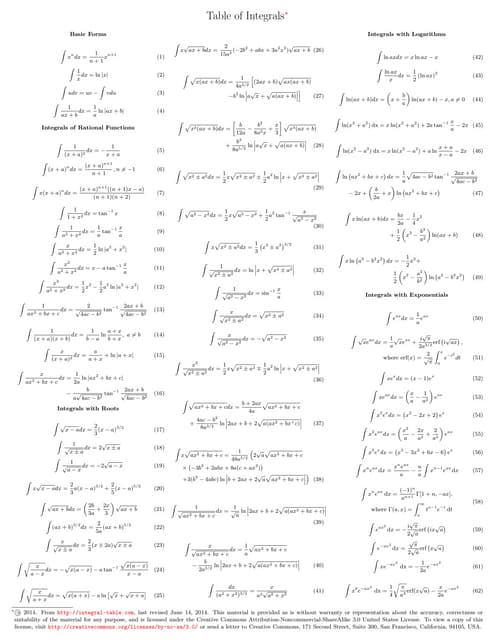 Table of Integrals*
Basic Forms
∫ xⁿdx = 1/(n+1) xⁿ⁺¹ (1)
∫ 1/x dx = ln |x| (2)
∫ udv = uv − ∫ vdu (3)
∫ 1/(ax + b) dx = 1/a ln |ax + b| (4)
Integrals of Rational Functions
∫ 1/(x + a)² dx = − 1/(x + a) (5)
∫ (x + a)ⁿdx = (x + a)ⁿ⁺¹/(n + 1), n ≠ −1 (6)
∫ x(x + a)ⁿdx = (x + a)ⁿ⁺¹((n + 1)x − a)/((n + 1)(n + 2)) (7)
∫ 1/(1 + x²) dx = tan⁻¹ x (8)
∫ 1/(a² + x²) dx = 1/a tan⁻¹ x/a (9)
∫ x/(a² + x²) dx = 1/2 ln |a² + x²| (10)
∫ x²/(a² + x²) dx = x − a tan⁻¹ x/a (11)
∫ x³/(a² + x²) dx = 1/2 x² − 1/2 a² ln |a² + x²| (12)
∫ 1/(ax² + bx + c) dx = 2/√(4ac − b²) tan⁻¹ (2ax + b)/√(4ac − b²) (13)
∫ 1/((x + a)(x + b)) dx = 1/(b − a) ln (a + x)/(b + x), a ≠ b (14)
∫ x/(x + a)² dx = a/(a + x) + ln |a + x| (15)
∫ x/(ax² + bx + c) dx = 1/2a ln |ax² + bx + c|
− b/(a√(4ac − b²)) tan⁻¹ (2ax + b)/√(4ac − b²) (16)
Integrals with Roots
∫ √(x − a) dx = 2/3 (x − a)^(3/2) (17)
∫ 1/√(x ± a) dx = 2√(x ± a) (18)
∫ 1/√(a − x) dx = −2√(a − x) (19)
∫ x√(x − a) dx = 2/3 a(x − a)^(3/2) + 2/5 (x − a)^(5/2) (20)
∫ √(ax + b) dx = (2b/3a + 2x/3) √(ax + b) (21)
∫ (ax + b)^(3/2) dx = 2/5a (ax + b)^(5/2) (22)
∫ x/√(x ± a) dx = 2/3 (x ∓ 2a)√(x ± a) (23)
∫ √(x/(a − x)) dx = −√(x(a − x)) − a tan⁻¹ √(x(a − x))/(x − a) (24)
∫ √(x/(a + x)) dx = √(x(a + x)) − a ln [√x + √(x + a)] (25)
∫ x√(ax + b) dx = 2/15a² (−2b² + abx + 3a²x²)√(ax + b) (26)
∫ √(x(ax + b)) dx = 1/4a^(3/2) [(2ax + b)√(ax(ax + b))
−b² ln |a√x + √(a(ax + b))|] (27)
∫ √(x³(ax + b)) dx = [b/12a − b²/8a²x + x/3] √(x³(ax + b))
+ b³/8a^(5/2) ln |a√x + √(a(ax + b))| (28)
∫ √(x² ± a²) dx = 1/2 x√(x² ± a²) ± 1/2 a² ln |x + √(x² ± a²)|
(29)
∫ √(a² − x²) dx = 1/2 x√(a² − x²) + 1/2 a² tan⁻¹ x/√(a² − x²)
(30)
∫ x√(x² ± a²) dx = 1/3 (x² ± a²)^(3/2) (31)
∫ 1/√(x² ± a²) dx = ln |x + √(x² ± a²)| (32)
∫ 1/√(a² − x²) dx = sin⁻¹ x/a (33)
∫ x/√(x² ± a²) dx = √(x² ± a²) (34)
∫ x/√(a² − x²) dx = −√(a² − x²) (35)
∫ x²/√(x² ± a²) dx = 1/2 x√(x² ± a²) ∓ 1/2 a² ln |x + √(x² ± a²)|
(36)
∫ √(ax² + bx + c) dx = (b + 2ax)/4a √(ax² + bx + c)
+ (4ac − b²)/8a^(3/2) ln |2ax + b + 2√(a(ax² + bx⁺c))| (37)
∫ x√(ax² + bx + c) = 1/48a^(5/2) (2√a√(ax² + bx + c)
× (−3b² + 2abx + 8a(c + ax²))
+3(b³ − 4abc) ln |b + 2ax + 2√a√(ax² + bx + c)|) (38)
∫ 1/√(ax² + bx + c) dx = 1/√a ln |2ax + b + 2√(a(ax² + bx + c))|
(39)
∫ x/√(ax² + bx + c) dx = 1/a √(ax² + bx + c)
− b/2a^(3/2) ln |2ax + b + 2√(a(ax² + bx + c))| (40)
∫ dx/(a² + x²)^(3/2) = x/(a²√(a² + x²)) (41)
Integrals with Logarithms
∫ ln ax dx = x ln ax − x (42)
∫ ln ax/x dx = 1/2 (ln ax)² (43)
∫ ln(ax + b) dx = (x + b/a) ln(ax + b) − x, a ≠ 0 (44)
∫ ln(x² + a²) dx = x ln(x² + a²) + 2a tan⁻¹ x/a − 2x (45)
∫ ln(x² − a²) dx = x ln(x² − a²) + a ln (x + a)/(x − a) − 2x (46)
∫ ln (ax² + bx + c) dx = 1/a √(4ac − b²) tan⁻¹ (2ax + b)/√(4ac − b²)
− 2x + (b/2a + x) ln (ax² + bx + c) (47)
∫ x ln(ax + b) dx = bx/2a − 1/4 x²
+ 1/2 (x² − b²/a²) ln(ax + b) (48)
∫ x ln (a² − b²x²) dx = − 1/2 x² +
1/2 (x² − a²/b²) ln (a² − b²x²) (49)
Integrals with Exponentials
∫ e^(ax) dx = 1/a e^(ax) (50)
∫ √x e^(ax) dx = 1/a √x e^(ax) + i√π/2a^(3/2) erf (i√(ax)),
where erf(x) = 2/√π ∫₀ˣ e^(−t²) dt (51)
∫ xeˣ dx = (x − 1)eˣ (52)
∫ xe^(ax) dx = (x/a − 1/a²) e^(ax) (53)
∫ x²eˣ dx = (x² − 2x + 2) eˣ (54)
∫ x²e^(ax) dx = (x²/a − 2x/a² + 2/a³) e^(ax) (55)
∫ x³eˣ dx = (x³ − 3x² + 6x − 6) eˣ (56)
∫ xⁿe^(ax) dx = xⁿe^(ax)/a − n/a ∫ xⁿ⁻¹e^(ax) dx (57)
∫ xⁿe^(ax) dx = (−1)ⁿ/aⁿ⁺¹ Γ[1 + n, −ax],
where Γ(a, x) = ∫ₓ^∞ t^(a−1)e^(−t) dt (58)
∫ e^(ax²) dx = − i√π/2√a erf (ix√a) (59)
∫ e^(−ax²) dx = √π/2√a erf (x√a) (60)
∫ xe^(−ax²) dx = − 1/2a e^(−ax²) (61)
∫ x²e^(−ax²) dx = 1/4 √(π/a³) erf(x√a) − x/2a e^(−ax²) (62)
*© 2014. From http://integral-table.com, last revised June 14, 2014. This material is provided as is without warranty or representation about the accuracy, correctness or
suitability of the material for any purpose, and is licensed under the Creative Commons Attribution-Noncommercial-ShareAlike 3.0 United States License. To view a copy of this
license, visit http://creativecommons.org/licenses/by-nc-sa/3.0/ or send a letter to Creative Commons, 171 Second Street, Suite 300, San Francisco, California, 94105, USA.